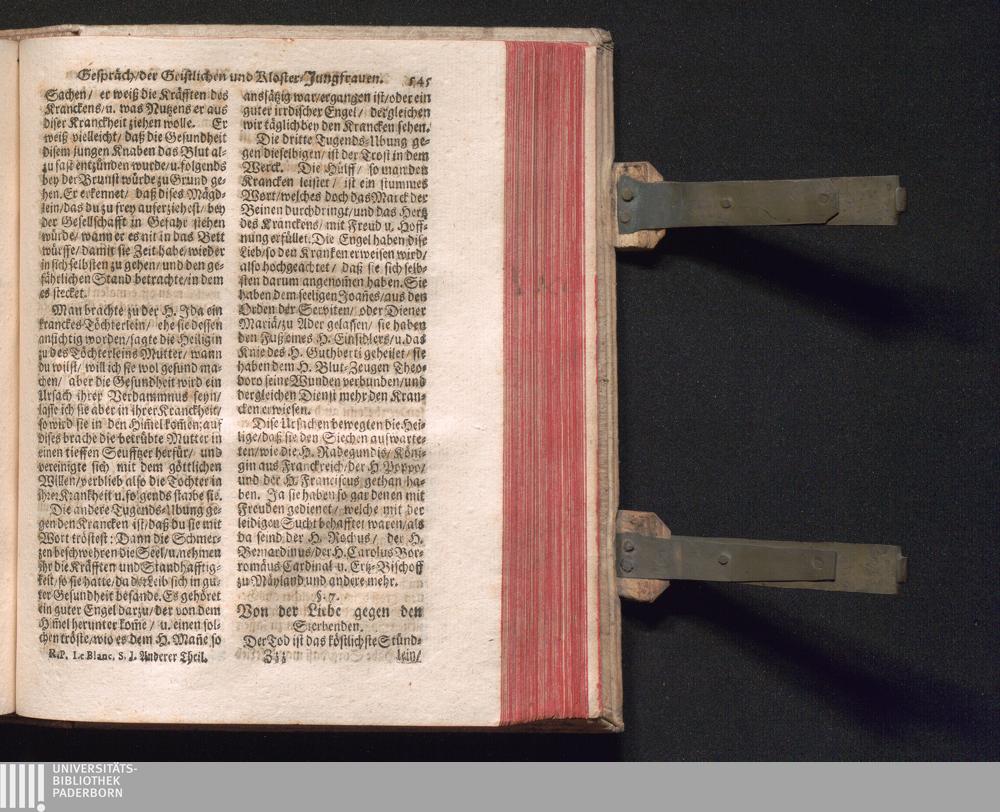 Gespräch/der Geistlichen und Kloster/Jungfrauen. 545
Sachen/ er weiß die Kräfften des
Kranckens/u. was Nutzens er aus
diser Kranckheit ziehen wolle. Er
weiß vielleicht/ daß die Gesundheit
disem jungen Knaben das Blut al-
zu fast entzünden wurde/u. folgends
bey der Brunst würde zu Grund ge-
hen. Er erkennet/ daß dises Mägd-
lein/das du zu frey auferziehest/ bey
der Gesellschafft in Gefahr stehen
würde/ wann er es nit in das Bett
würffe/ damit sie Zeit habe/ wieder
in sich selbsten zu gehen/ und den ge-
fährlichen Stand betrachte/in dem
es stecket.
Man brachte zu der H. Ida ein
kranckes Töchterlein/ ehe sie dessen
ansichtig worden/sagte die Heiligin
zu des Töchterleins Mutter/ wann
du wilst/ will ich sie wol gesund ma-
chen/ aber die Gesundheit wird ein
Ursach ihrer Verdammnus seyn/
lasse ich sie aber in ihrer Kranckheit/
so wird sie in den Him̃el kom̃en; auf
dises brache die betrübte Mutter in
einen tieffen Seufftzer herfür/ und
vereinigte sich mit dem göttlichen
Willen/ verblieb also die Tochter in
ihrer Krankheit u. folgends starbe sie.
Die andere Tugends-Ubung ge-
gen den Krancken ist/ daß du sie mit
Wort tröstest: Dann die Schmer-
zen beschwehren die Seel/ u. nehmen
ihr die Kräfften und Standhafftig-
keit/ so sie hatte/ da der Leib sich in gu-
ter Gesundheit befande. Es gehöret
ein guter Engel darzu/ der von dem
Him̃el herunter kom̃e/ u. einen sol-
chen tröste/ wie es dem H. Mañe so
R.P. Le Blanc, S. J. Anderer Theil.
aussätzig war/ergangen ist/oder ein
guter irrdischer Engel/ dergleichen
wir täglich bey den Krancken sehen.
Die dritte Tugends-Ubung ge-
gen dieselbigen/ ist der Trost in dem
Werck. Die Hülff/ so man den
Krancken leistet/ ist ein stummes
Wort/welches doch das Marck der
Beinen durchdringt/und das Hertz
des Kranckens/ mit Freud u. Hoff-
nung erfüllet. Die Engel haben dise
Lieb/so den Kranken erweisen wird/
also hochgeachtet/ daß sie sich selb-
sten darum angenom̃en haben. Sie
haben dem seeligen Joañes/aus den
Orden der Serviten/ oder Diener
Mariä/zu Ader gelassen/ sie haben
den Fuß eines H. Einsidlers/u. das
Knie des H. Guthberti geheilet/ sie
haben dem H. Blut-Zeugen Theo-
doro seine Wunden verbunden/und
dergleichen Dienst mehr den Kran-
cken erwiesen.
Dise Ursachen bewegten die Hei-
lige/daß sie den Siechen aufwarte-
ten/wie die H. Radegundis/ Köni-
gin aus Franckreich/der H. Poppo/
und der H. Franciscus gethan ha-
ben. Ja sie haben so gar denen mit
Freuden gedienet/ welche mit der
leidigen Sucht behafftet waren/als
da seind der H. Rochus/ der H.
Bernardinus/der H. Carolus Bor-
romäus Cardinal u. Ertz-Bischoff
zu Mäyland und andere mehr.
§. 7.
Von der Liebe gegen den
Sterbenden.
Der Tod ist das köstlichste Stünd-
Zzz
lein/
UNIVERSITÄTS-
BIBLIOTHEK
PADERBORN